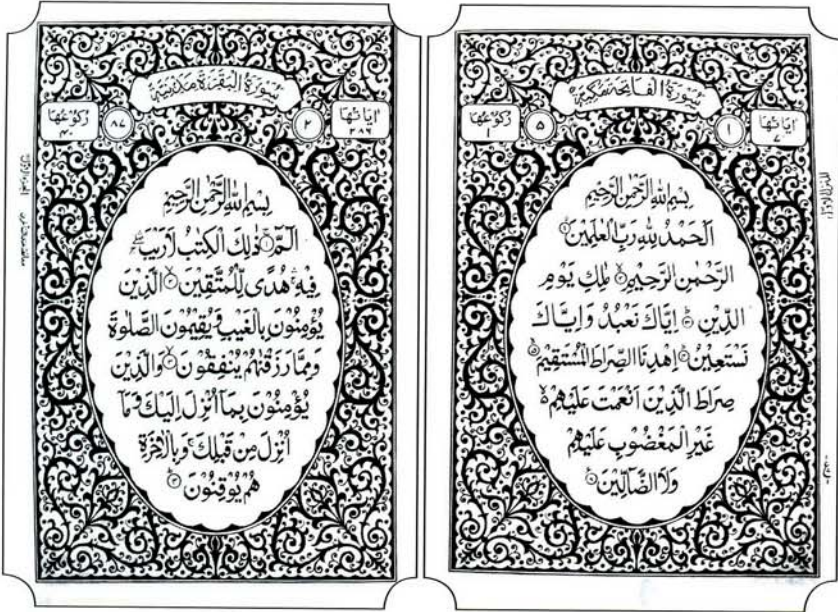 سُوْرَةُ الْفَاتِحَةِ مَكِّيَّةٌ
اٰيَاتُهَا ٧
١
٥
رُكُوْعُهَا ١
بِسْمِ اللّٰهِ الرَّحْمٰنِ الرَّحِيْمِ
اَلْحَمْدُ لِلّٰهِ رَبِّ الْعٰلَمِيْنَ ۙ﴿١﴾
الرَّحْمٰنِ الرَّحِيْمِ ۙ﴿٢﴾ مٰلِكِ يَوْمِ
الدِّيْنِ ؕ﴿٣﴾ اِيَّاكَ نَعْبُدُ وَ اِيَّاكَ
نَسْتَعِيْنُ ؕ﴿٤﴾ اِهْدِنَا الصِّرَاطَ الْمُسْتَقِيْمَ ۙ﴿٥﴾
صِرَاطَ الَّذِيْنَ اَنْعَمْتَ عَلَيْهِمْ ۙ۬
غَيْرِ الْمَغْضُوْبِ عَلَيْهِمْ
وَلَا الضَّآلِّيْنَ ﴿٧﴾
سُوْرَةُ الْبَقَرَةِ مَدَنِيَّةٌ
اٰيَاتُهَا ٢٨٦
٢
٨٧
رُكُوْعُهَا ٤٠
بِسْمِ اللّٰهِ الرَّحْمٰنِ الرَّحِيْمِ
الٓمّٓ ۚ﴿١﴾ ذٰلِكَ الْكِتٰبُ لَا رَيْبَ ۛۖ
فِيْهِ ۛۚ هُدًى لِّلْمُتَّقِيْنَ ۙ﴿٢﴾ الَّذِيْنَ
يُؤْمِنُوْنَ بِالْغَيْبِ وَ يُقِيْمُوْنَ الصَّلٰوةَ
وَمِمَّا رَزَقْنٰهُمْ يُنْفِقُوْنَ ۙ﴿٣﴾ وَالَّذِيْنَ
يُؤْمِنُوْنَ بِمَآ اُنْزِلَ اِلَيْكَ وَ مَآ
اُنْزِلَ مِنْ قَبْلِكَ ۚ وَ بِالْاٰخِرَةِ
هُمْ يُوْقِنُوْنَ ؕ﴿٤﴾
الجزء الاول